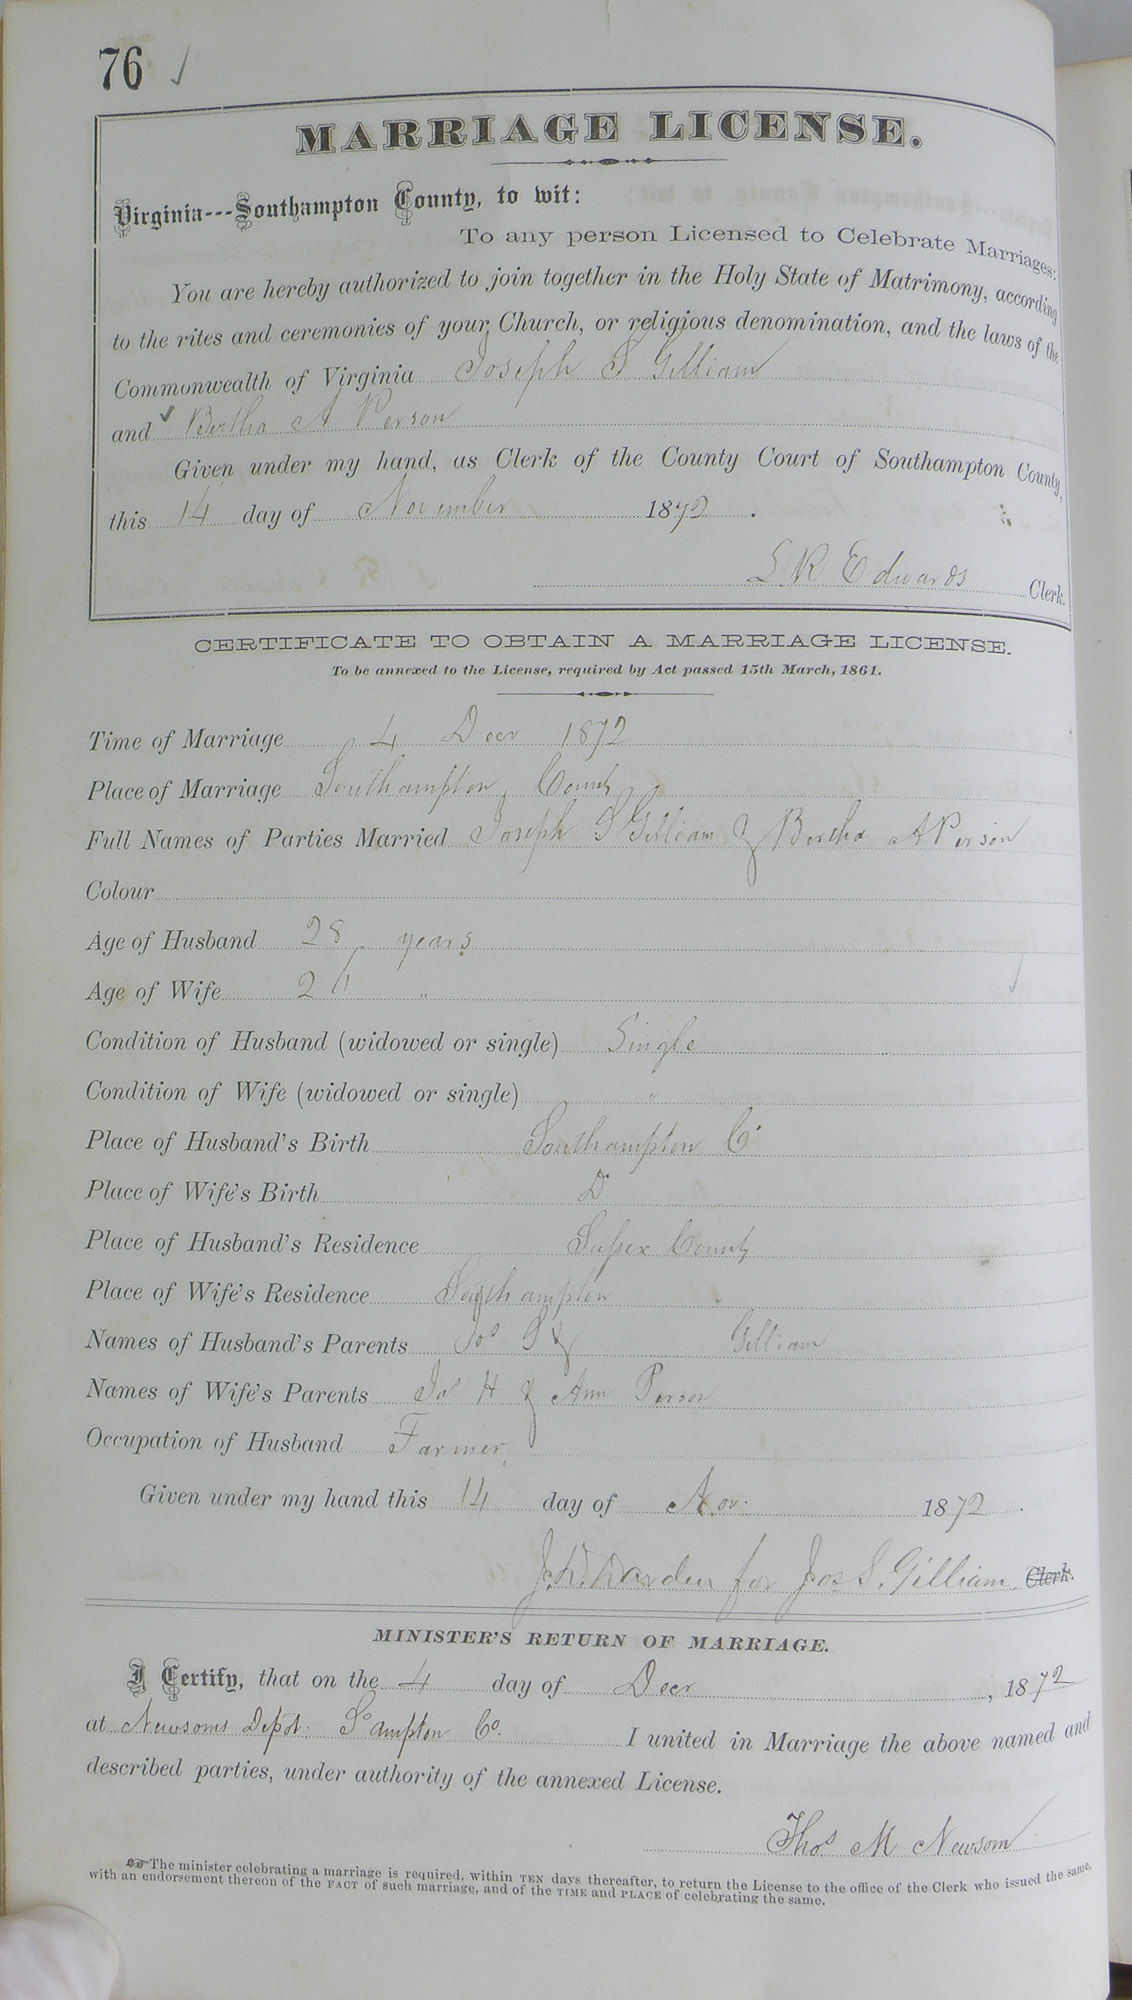 76 ✓
MARRIAGE LICENSE.
Virginia---Southampton County, to wit:
To any person Licensed to Celebrate Marriages:
You are hereby authorized to join together in the Holy State of Matrimony, according
to the rites and ceremonies of your Church, or religious denomination, and the laws of the
Commonwealth of Virginia Joseph S Gilliam
and Bertha A Person
Given under my hand, as Clerk of the County Court of Southampton County,
this 14 day of November 1872.
L R Edwards Clerk.
CERTIFICATE TO OBTAIN A MARRIAGE LICENSE.
To be annexed to the License, required by Act passed 15th March, 1861.
Time of Marriage 4 Decr 1872
Place of Marriage Southampton County
Full Names of Parties Married Joseph S Gilliam & Bertha A Person
Colour
Age of Husband 28 years
Age of Wife "
Condition of Husband (widowed or single) Single
Condition of Wife (widowed or single) "
Place of Husband's Birth Southampton Co
Place of Wife's Birth Do
Place of Husband's Residence Sussex County
Place of Wife's Residence Southampton "
Names of Husband's Parents Jos S & Gilliam
Names of Wife's Parents Jas H & Ann Person
Occupation of Husband Farmer
Given under my hand this 14 day of Nov. 1872.
Darden for Jos S. Gilliam Clerk.
MINISTER'S RETURN OF MARRIAGE.
I Certify, that on the 4 day of Decr, 1872
at Newsoms Depot. So ampton Co. I united in Marriage the above named and
described parties, under authority of the annexed License.
Thos M Newsom
☞ The minister celebrating a marriage is required, within TEN days thereafter, to return the License to the office of the Clerk who issued the same,
with an endorsement thereon of the FACT of such marriage, and of the TIME and PLACE of celebrating the same.